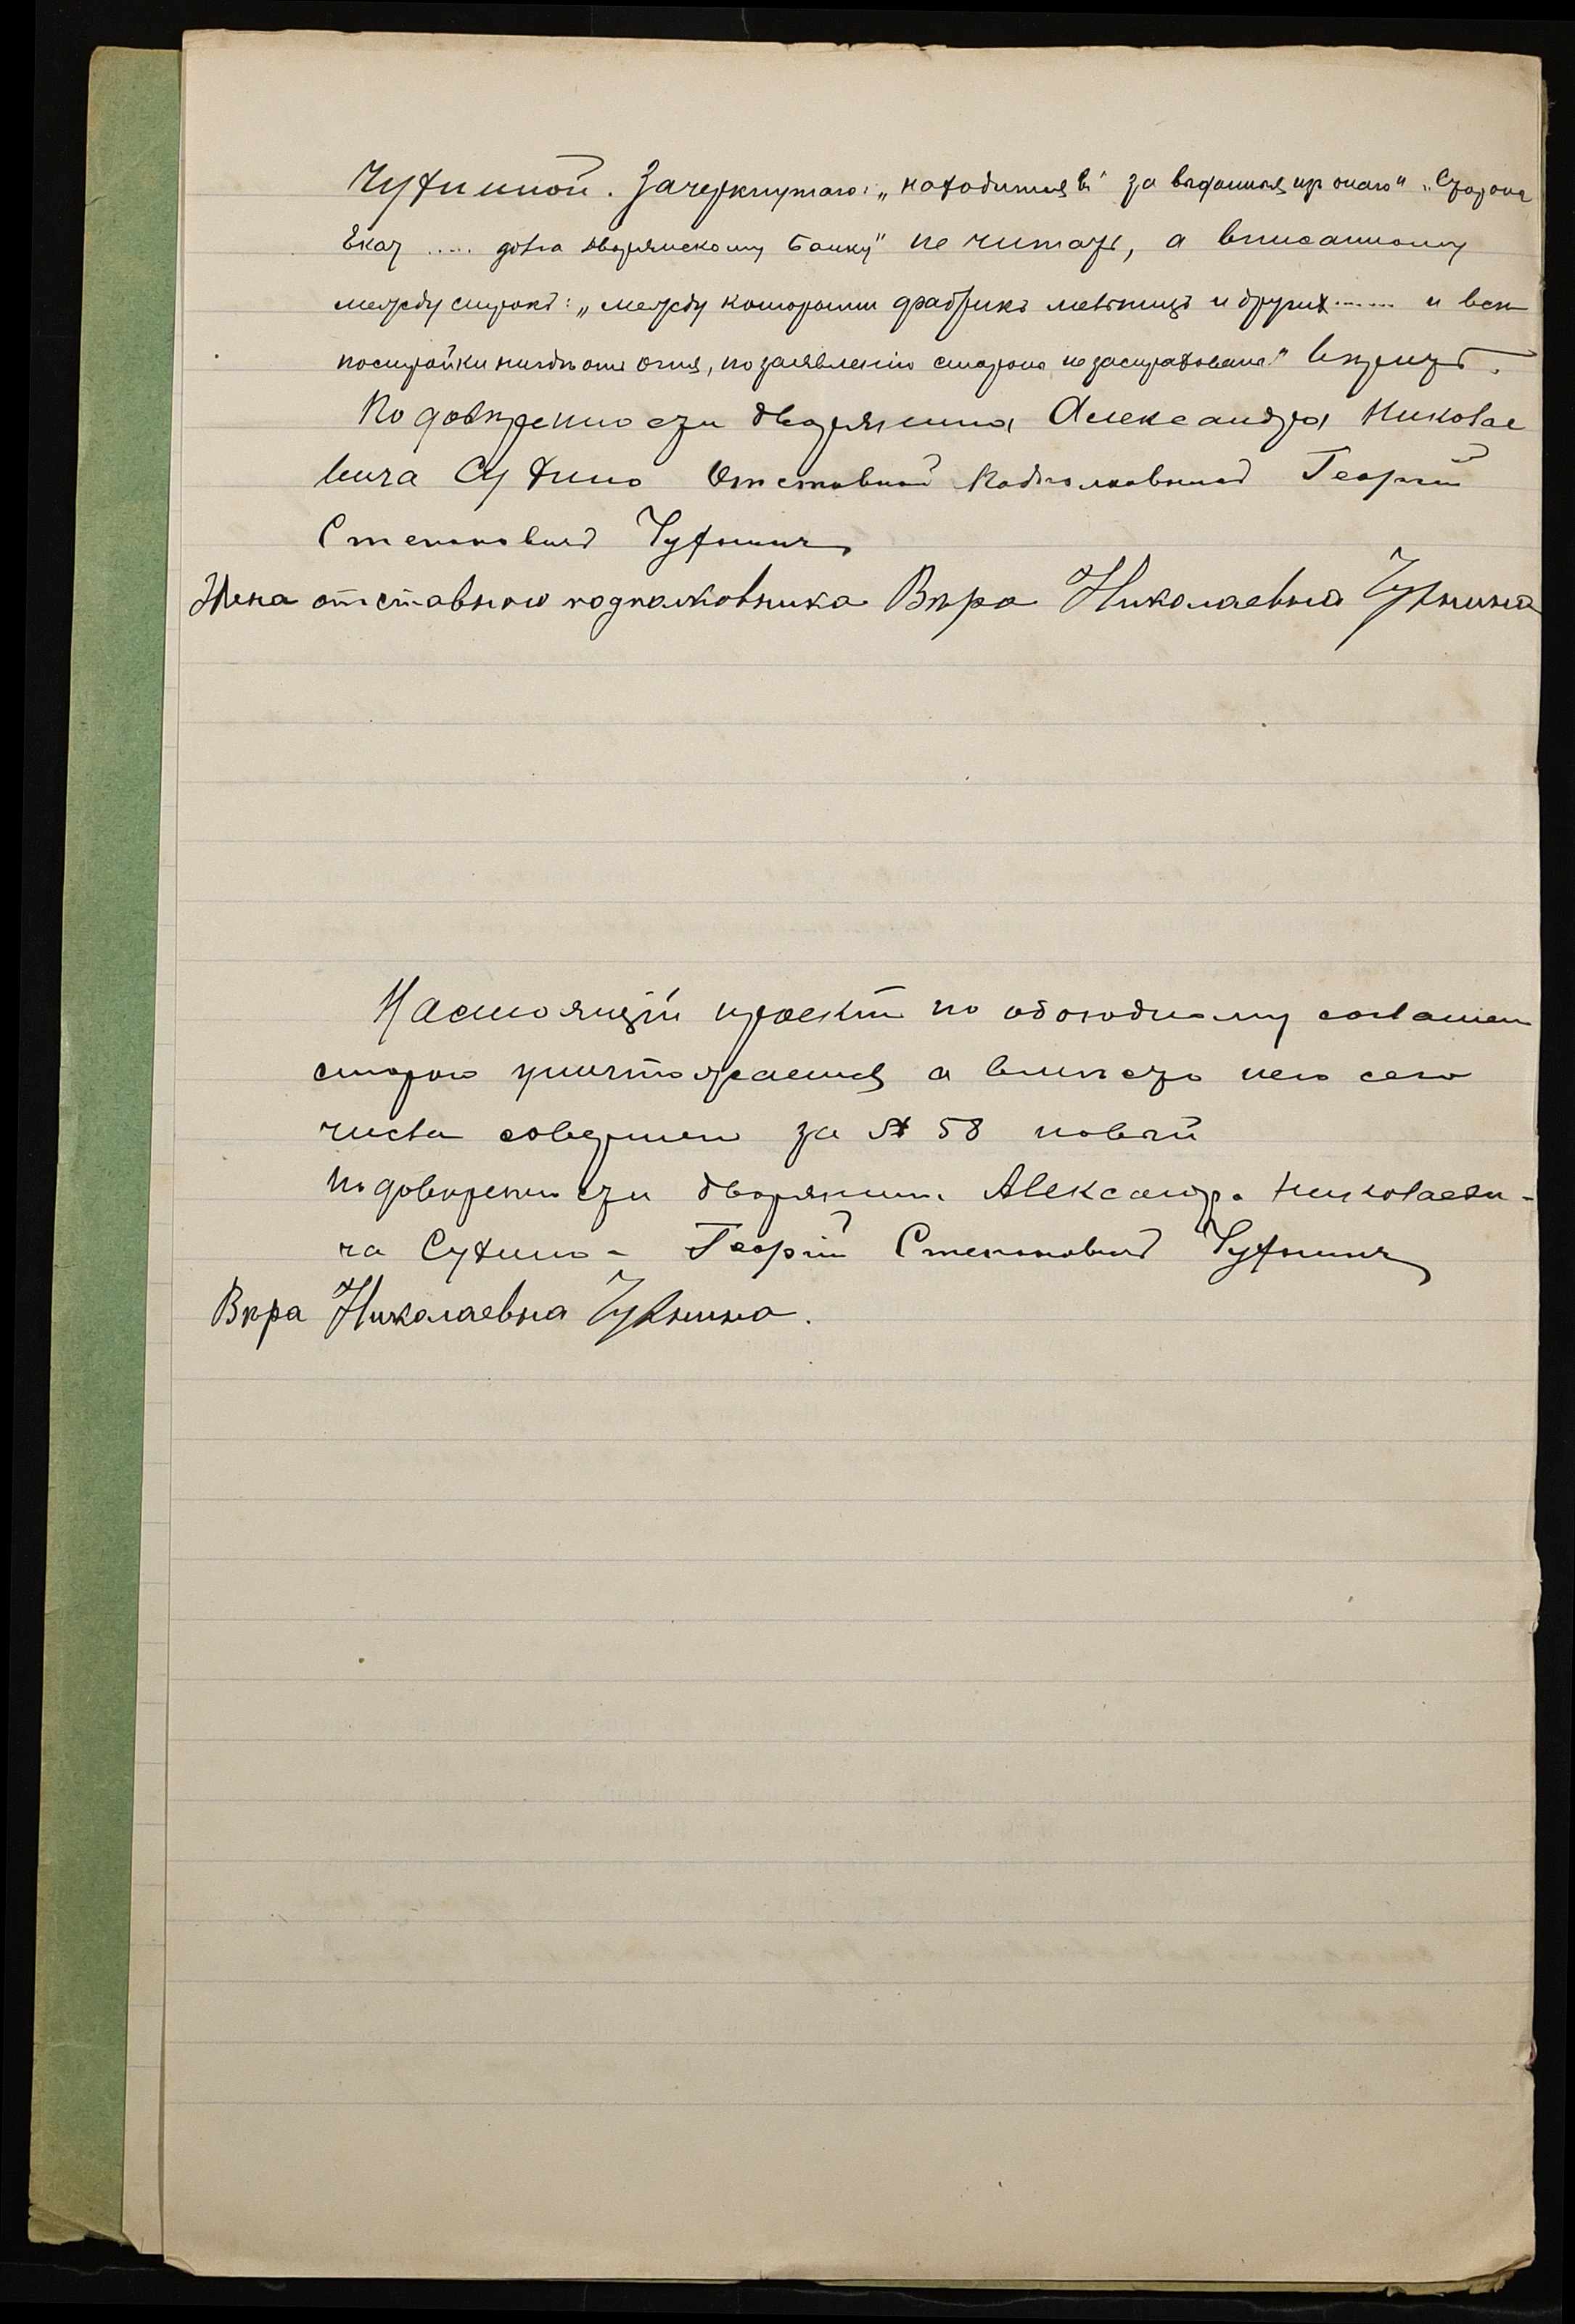 Чухниной. Зачеркнутаго: „находится въ" за выданныя изъ онаго" „Сторона
Екат ..... долга Дворянскому Банку" не читать, а вписанному
между строкъ: „между которыми фабрикъ мельницъ и другихъ ...... и все
постройки нигдѣ отъ огня, по заявленію сторонъ не застрахованы" вѣрить.
По довѣренности дворянина Александра Николае
вича Сухино Отставной Подполковникъ Георгій
Степановичъ Чухнинъ
Жена отставного подполковника Вѣра Николаевна Чухнина
Настоящій проектъ по обоюдному соглашен
сторонъ уничтожается а вмѣсто него сего
числа совершенъ за № 58 новый
По довѣренности дворянина Александра Николаеви-
ча Сухино - Георгій Степановичъ Чухнинъ
Вѣра Николаевна Чухнина.